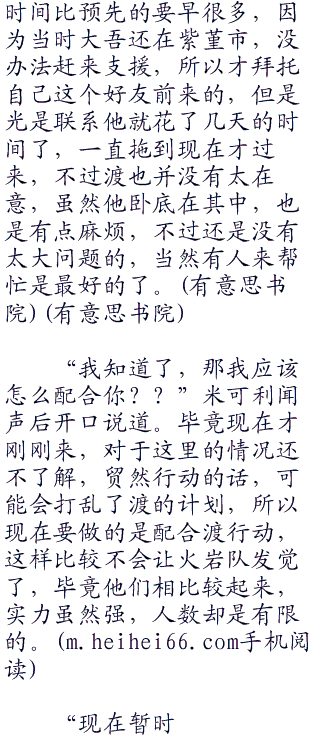 时间比预先的要早很多，因
为当时大吾还在紫堇市，没
办法赶来支援，所以才拜托
自己这个好友前来的，但是
光是联系他就花了几天的时
间了，一直拖到现在才过
来，不过渡也并没有太在
意，虽然他卧底在其中，也
是有点麻烦，不过还是没有
太大问题的，当然有人来帮
忙是最好的了。(有意思书
院)(有意思书院)
“我知道了，那我应该
怎么配合你？？”米可利闻
声后开口说道。毕竟现在才
刚刚来，对于这里的情况还
不了解，贸然行动的话，可
能会打乱了渡的计划，所以
现在要做的是配合渡行动，
这样比较不会让火岩队发觉
了，毕竟他们相比较起来，
实力虽然强，人数却是有限
的。(m.heihei66.com手机阅
读)
“现在暂时